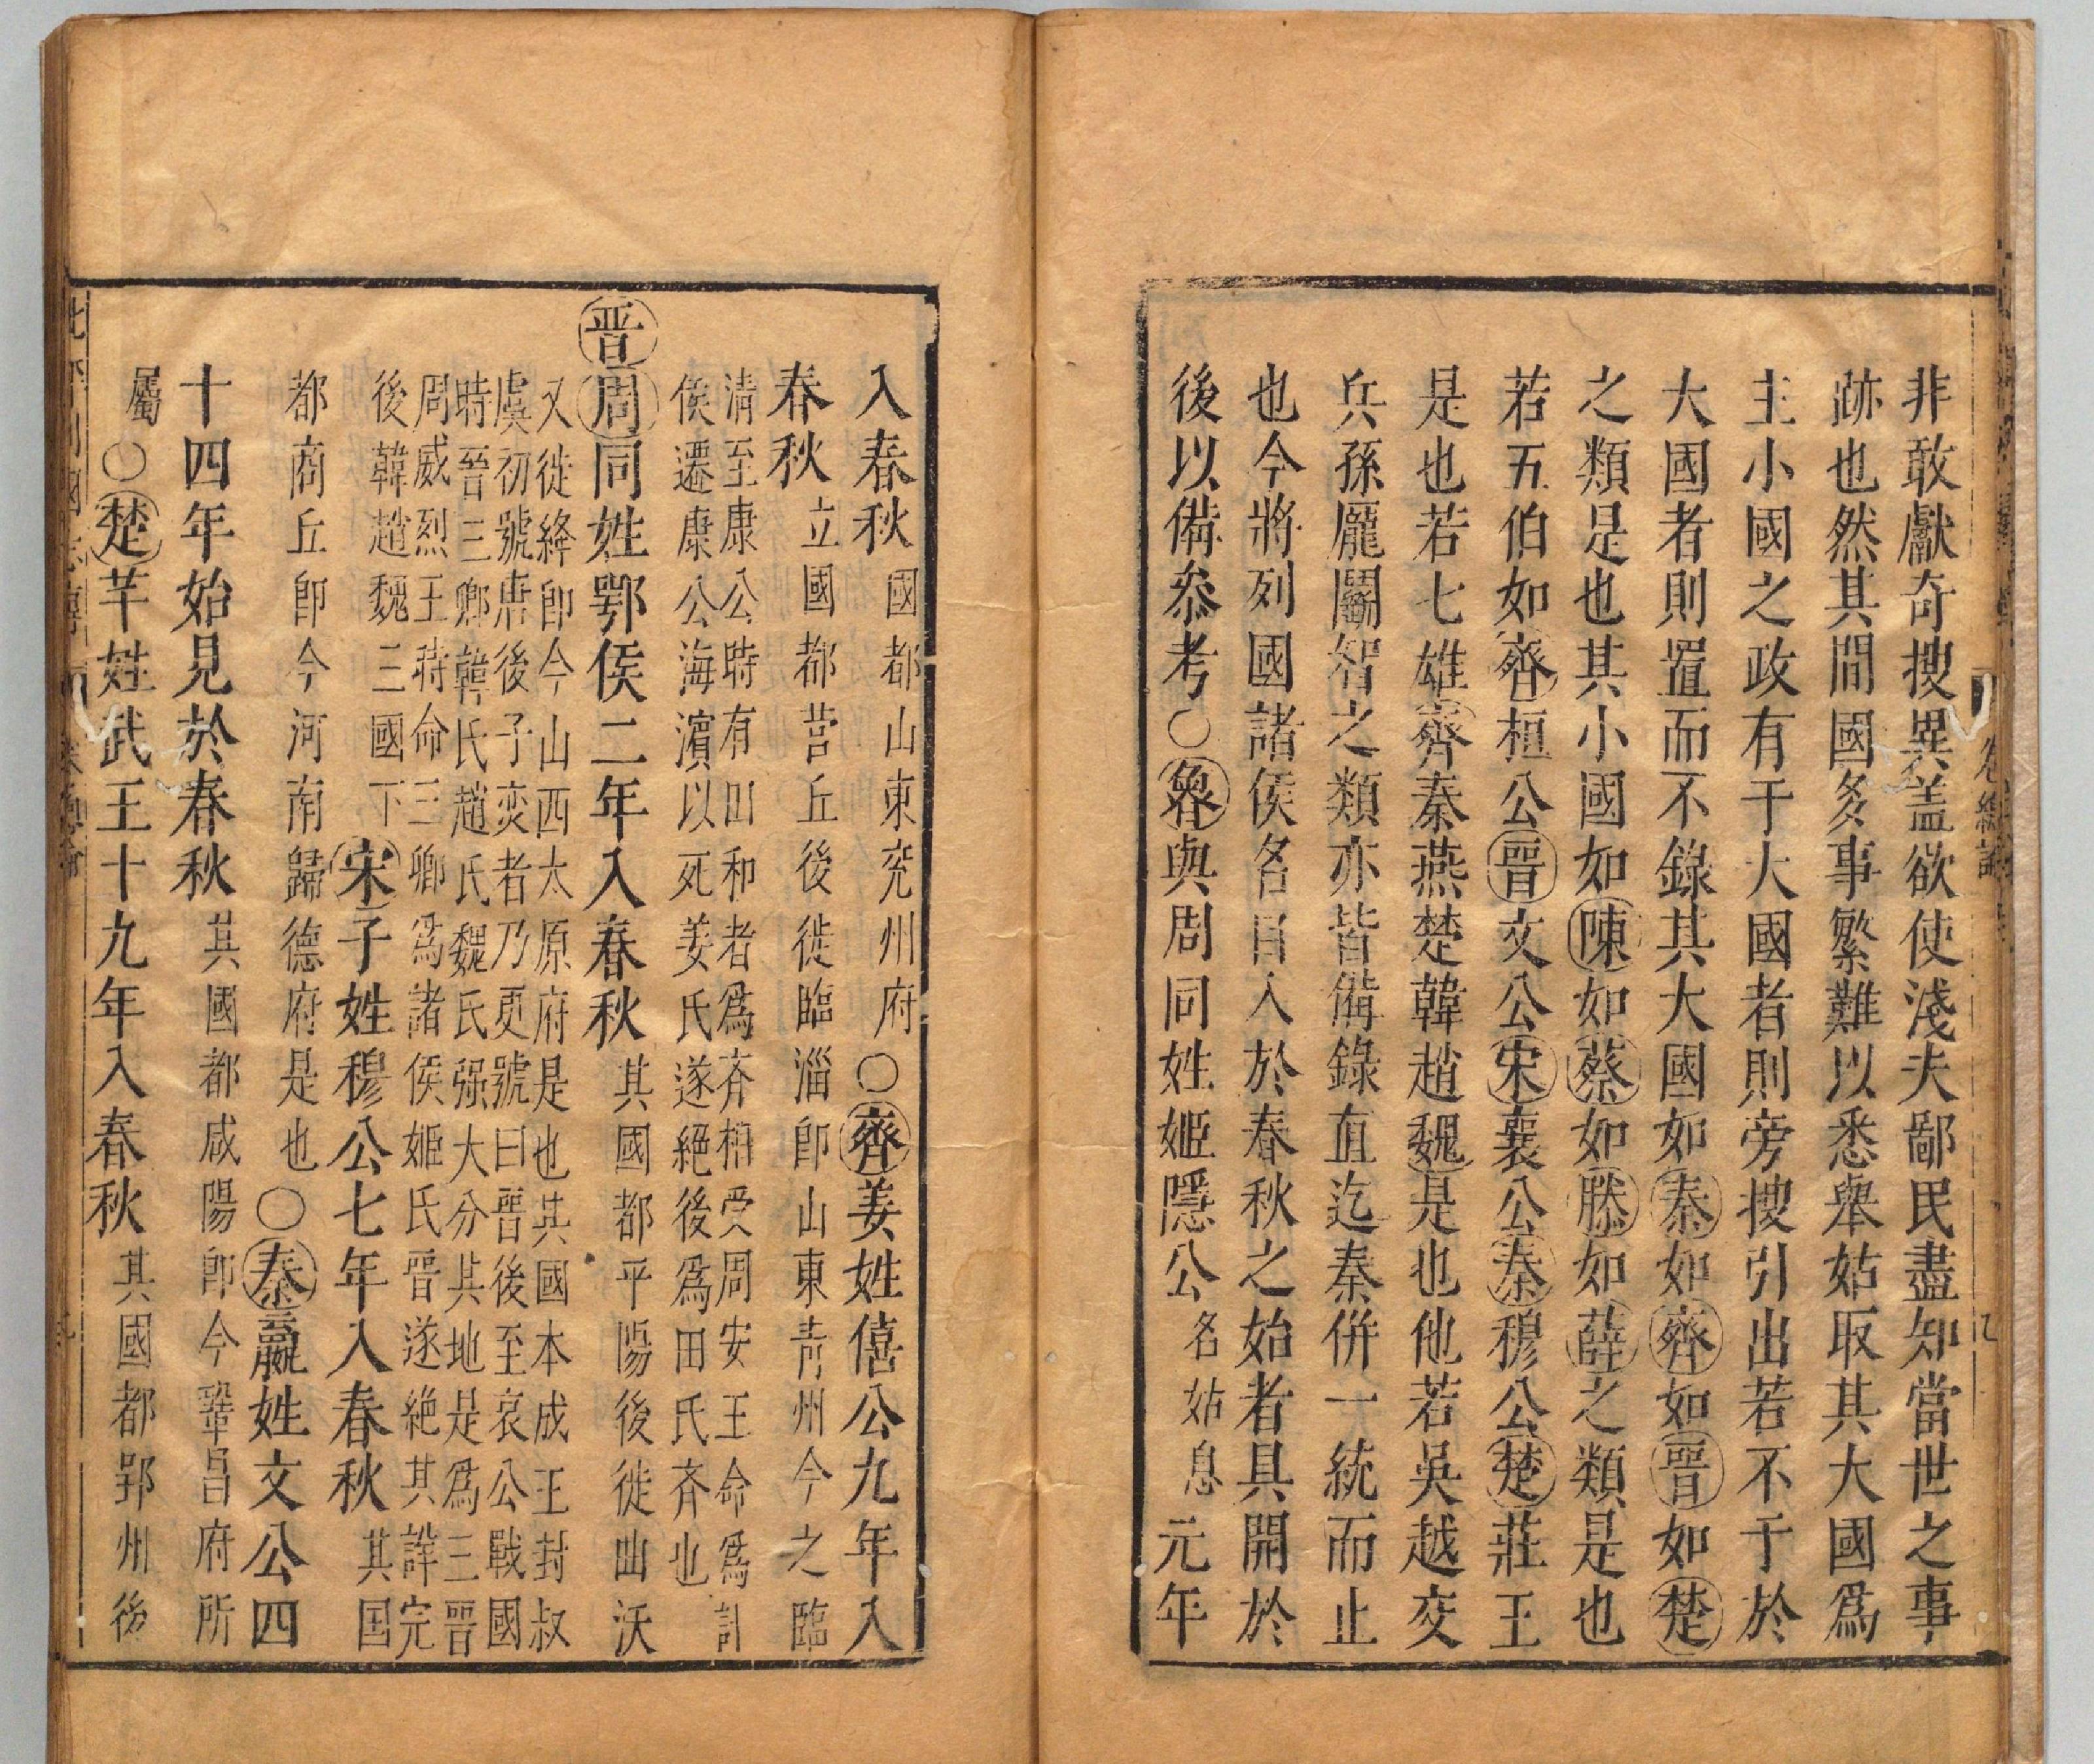 非敢獻奇搜異盖欲使淺夫鄙民盡知當世之事
跡也然其間國多事繁難以悉舉姑取其大國爲
主小國之政有于大國者則旁搜引出若不于於
大國者則置而不錄其大國如秦如齊如晋如楚
之類是也其小國如陳如蔡如滕如薛之類是也
若五伯如齊桓公晋文公宋襄公秦穆公楚莊王
是也若七雄齊秦燕楚韓趙魏是也他若吳越交
兵孫龐鬬智之類亦皆備錄直迄秦併一統而止
也今將列國諸侯名目入於春秋之始者具開於
後以備叅考○魯與周同姓姬隱公名姑息元年
入春秋國都山東兖州府○齊姜姓僖公九年入
春秋立國都營丘後徙臨淄即山東靑州今之臨
淸至康公時有田和者爲齐相受周安王命爲諸
侯遷康公海濵以死姜氏遂絕後爲田氏齐也
晋周同姓鄂侯二年入春秋其國都平陽後徙曲沃
又徙絳即今山西太原府是也其國本成王封叔
虞初號唐後子燮者乃更號曰晋後至哀公戰國
時晉三卿韓氏趙氏魏氏强大分其地是爲三晋
周威烈王時命三卿爲諸侯姬氏晋遂絕其詳完
後韓趙魏三國下宋子姓穆公七年入春秋其国
都商丘即今河南歸德府是也○秦嬴姓文公四
十四年始見於春秋其國都咸陽即今鞏昌府所
屬○楚芊姓武王十九年入春秋其國都郢州後